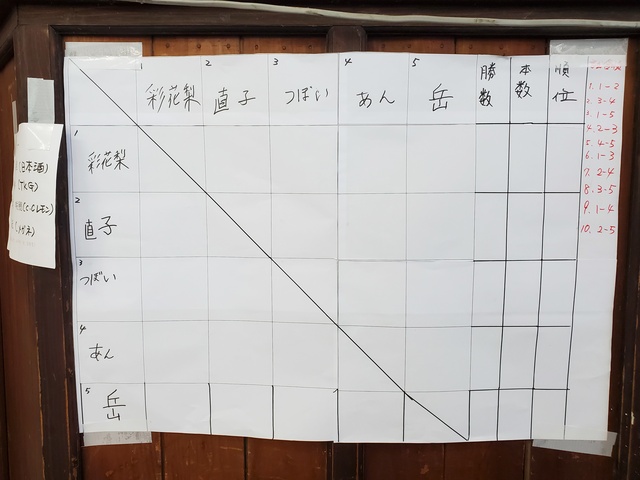 1 2 3 4 5
彩花梨 直子 つぼい あん 岳 勝数 本数 順位
1 彩花梨
2 直子
3 つぼい
4 あん
5 岳
1. 1-2
2. 3-4
3. 1-5
4. 2-3
5. 4-5
6. 1-3
7. 2-4
8. 3-5
9. 1-4
10. 2-5
(日本酒)
(TKG)
(C.C.レモン)
(メガネ)